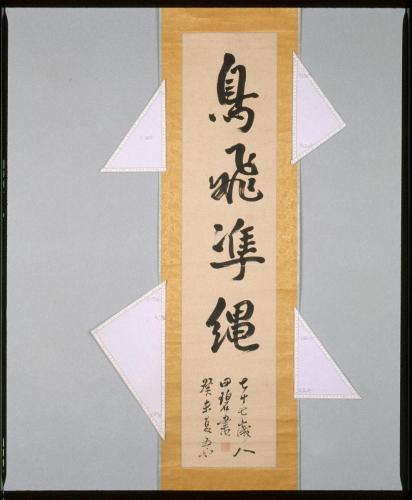 鳥飛準縄
七十七歳八
田碧書
癸未夏